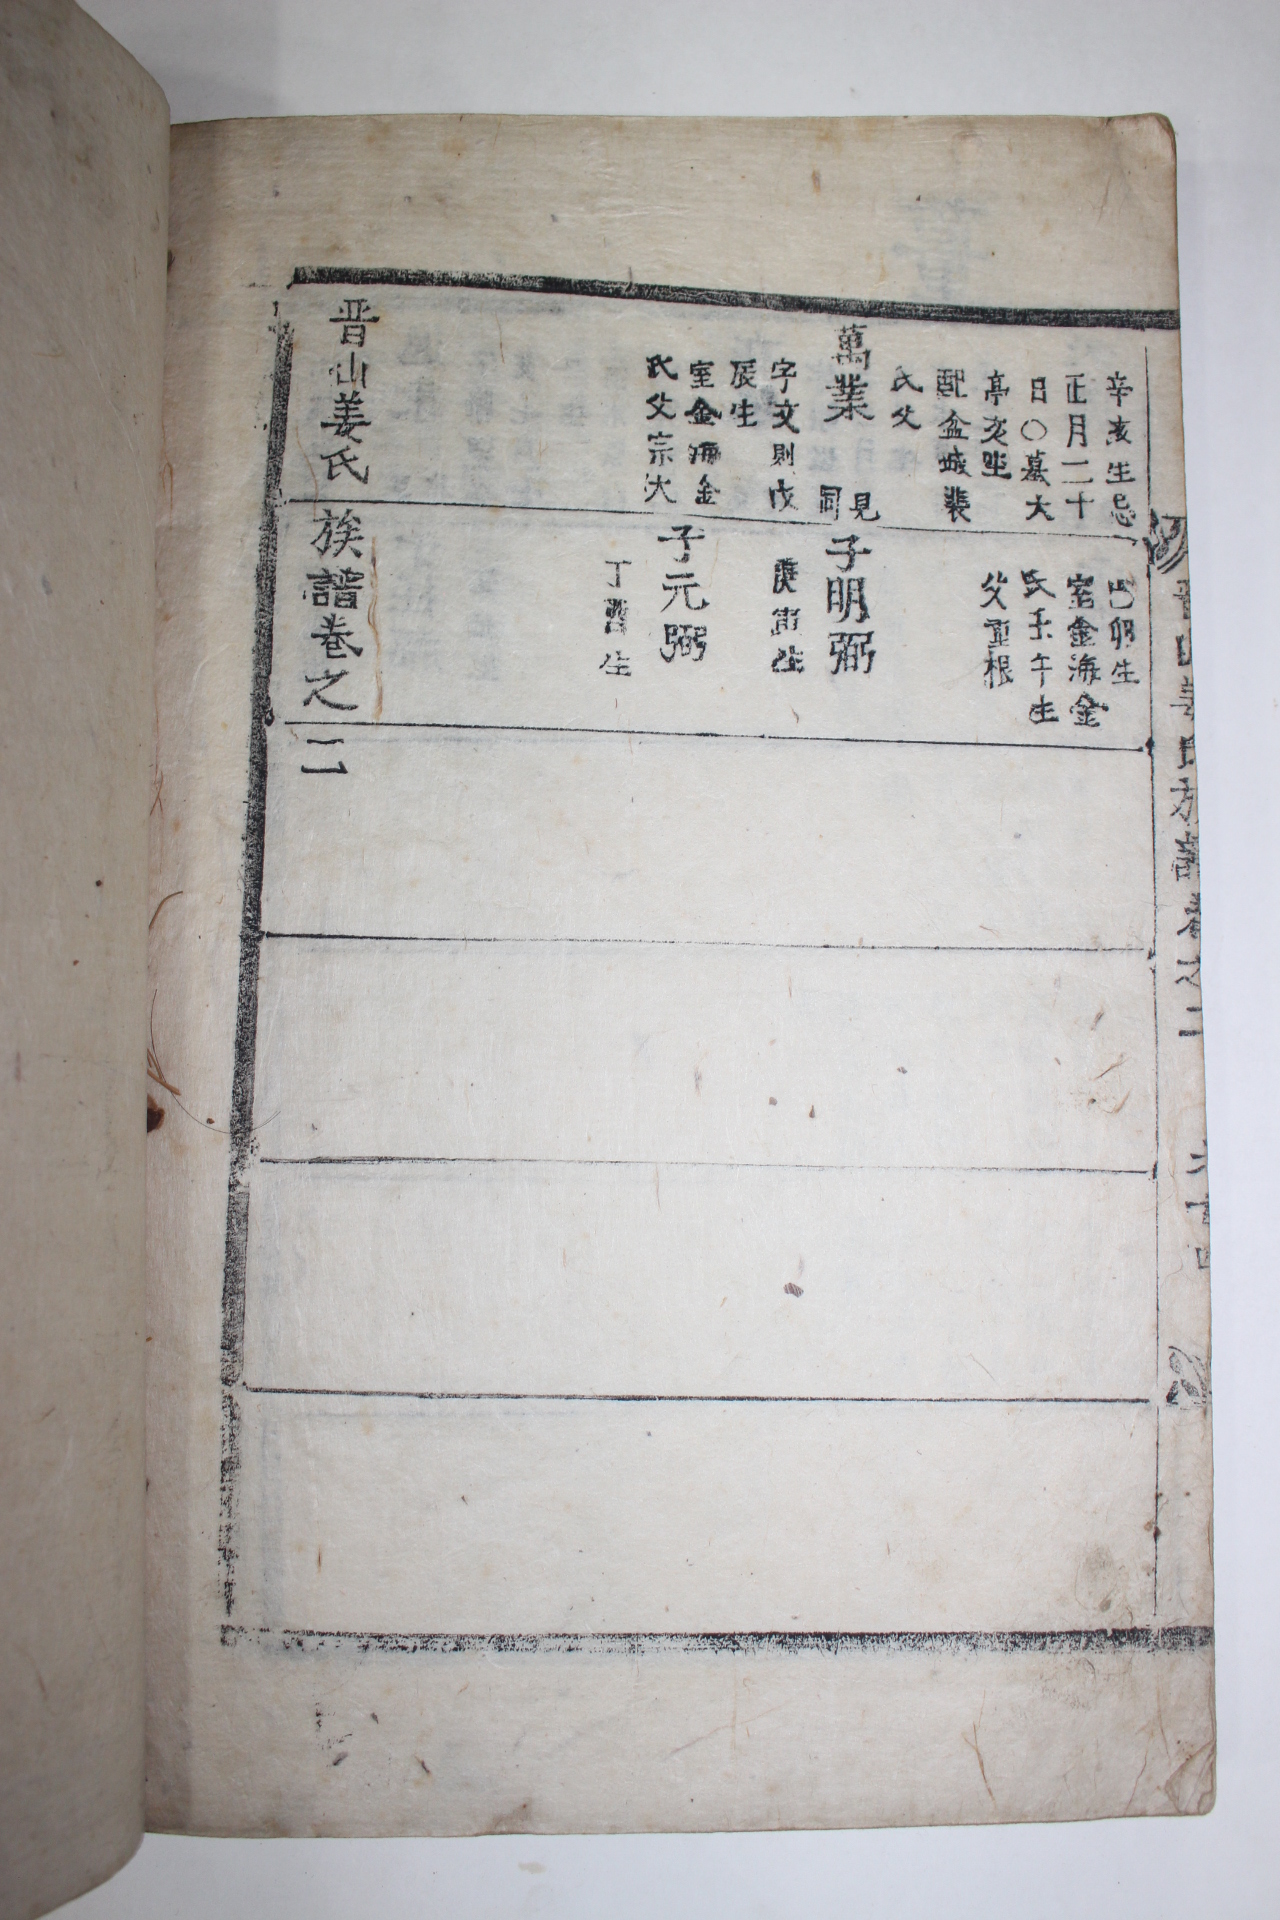 辛亥生忌
正月二十
日○墓大
亭亥坐
配盆城裴
氏父
萬業
見
同
字文則戊
辰生
室金海金
氏父宗大
己卯生
室金海金
氏壬午生
父重根
子明弼
庚寅生
子元弼
丁酉生
晋山姜氏族譜卷之二
晋山姜氏族譜卷之二